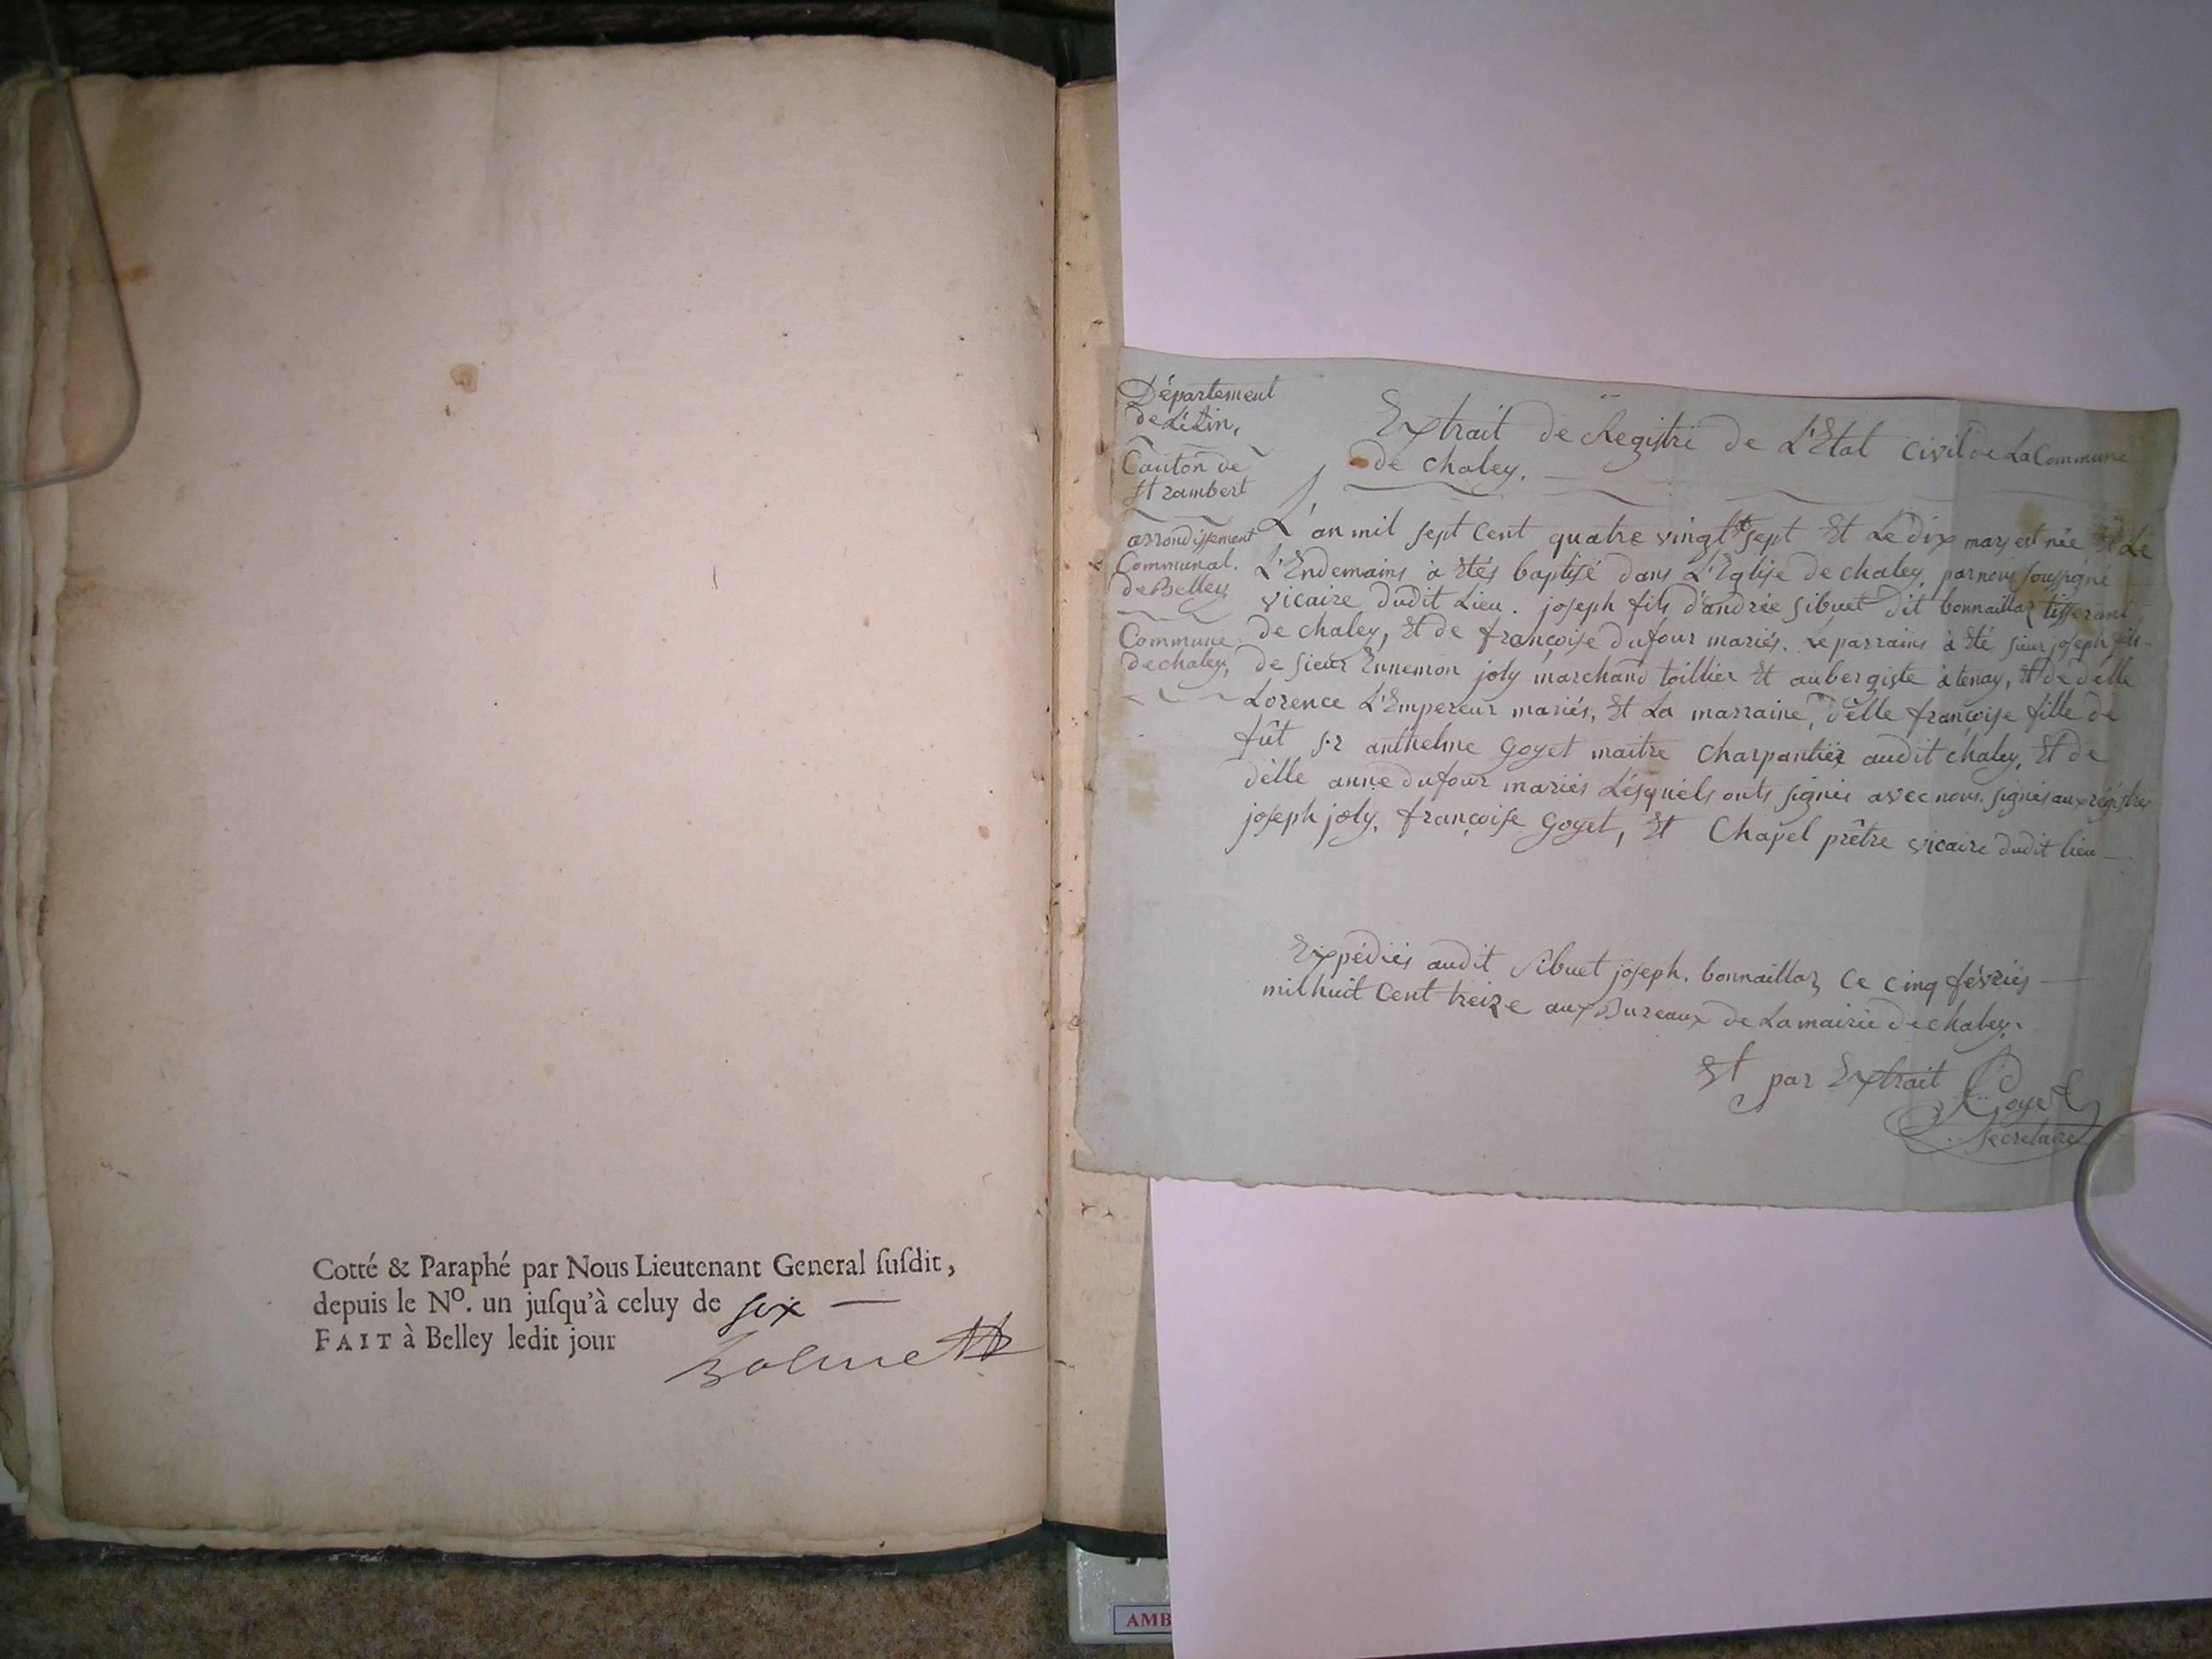 Cotté & Paraphé par Nous Lieutenant General ſuſdit,
depuis le Nº. un juſqu'à celuy de six —
FAIT à Belley ledit jour
Département
de L'Ain,
Canton de
st rambert
arrondissement
Communal.
de Belley
Commune
de chaley,
Extrait de Registre de L'Etat Civil de La Commune
de chaley.
L'an mil sept Cent quatre vingt sept Et Le dix mars est née Et Le
L'Endemains à Etés baptisé dans L'Eglise de chaley, par nous soussigné
vicaire dudit Lieu. joseph fils d'andrée sibuet dit bonnaillaz tisserant
de chaley, Et de françoise dufour mariés. Le parrains à Eté sieur joseph fils
de sieur Ennemon joly marchand toillier Et aubergiste à tenay, Et de delle
Lorence L'Empereur mariés, Et La marraine, d'elle françoise fille de
fût sr anthelme goyet maitre Charpantier audit chaley, Et de
d'elle anne dufour mariés Lésquéls onts signés avec nous. signés aux régistres
joseph joly, françoise goyet, Et Chapel prêtre vicaire dudit lieu —
Expédiés audit Sibuet joseph. bonnaillaz Ce Cinq févriés —
mil huit Cent treize aux Bureaux de La mairie de chaley.
Et par Extrait
Goyet
secretaire
AMB